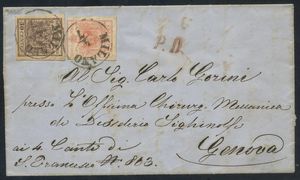 MILANO
P.D.
Al Sig. Carlo Gorini
presso L'Officina Chirurg. Meccanica
di Desiderio Sighinolfi
ai 4 Canti di
S. Francesco N.º 863.
Genova